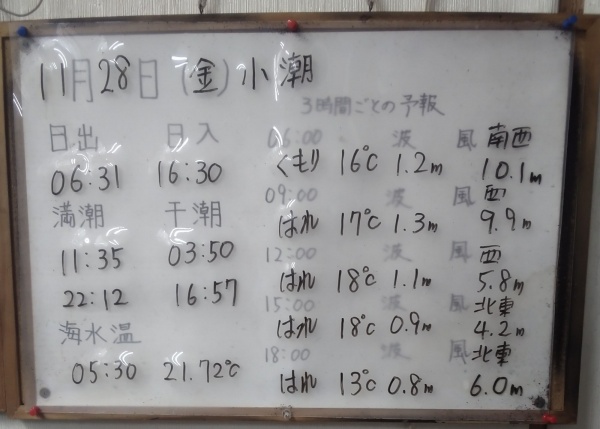 11月28日(金)小潮
日出 日入
06:31 16:30
満潮 干潮
11:35 03:50
22:12 16:57
海水温
05:30 21.72℃
3時間ごとの予報
06:00 波 風 南西
くもり 16℃ 1.2m 10.1m
09:00 波 風 西
はれ 17℃ 1.3m 9.9m
12:00 波 風 西
はれ 18℃ 1.1m 5.8m
15:00 波 風 北東
はれ 18℃ 0.9m 4.2m
18:00 波 風 北東
はれ 13℃ 0.8m 6.0m